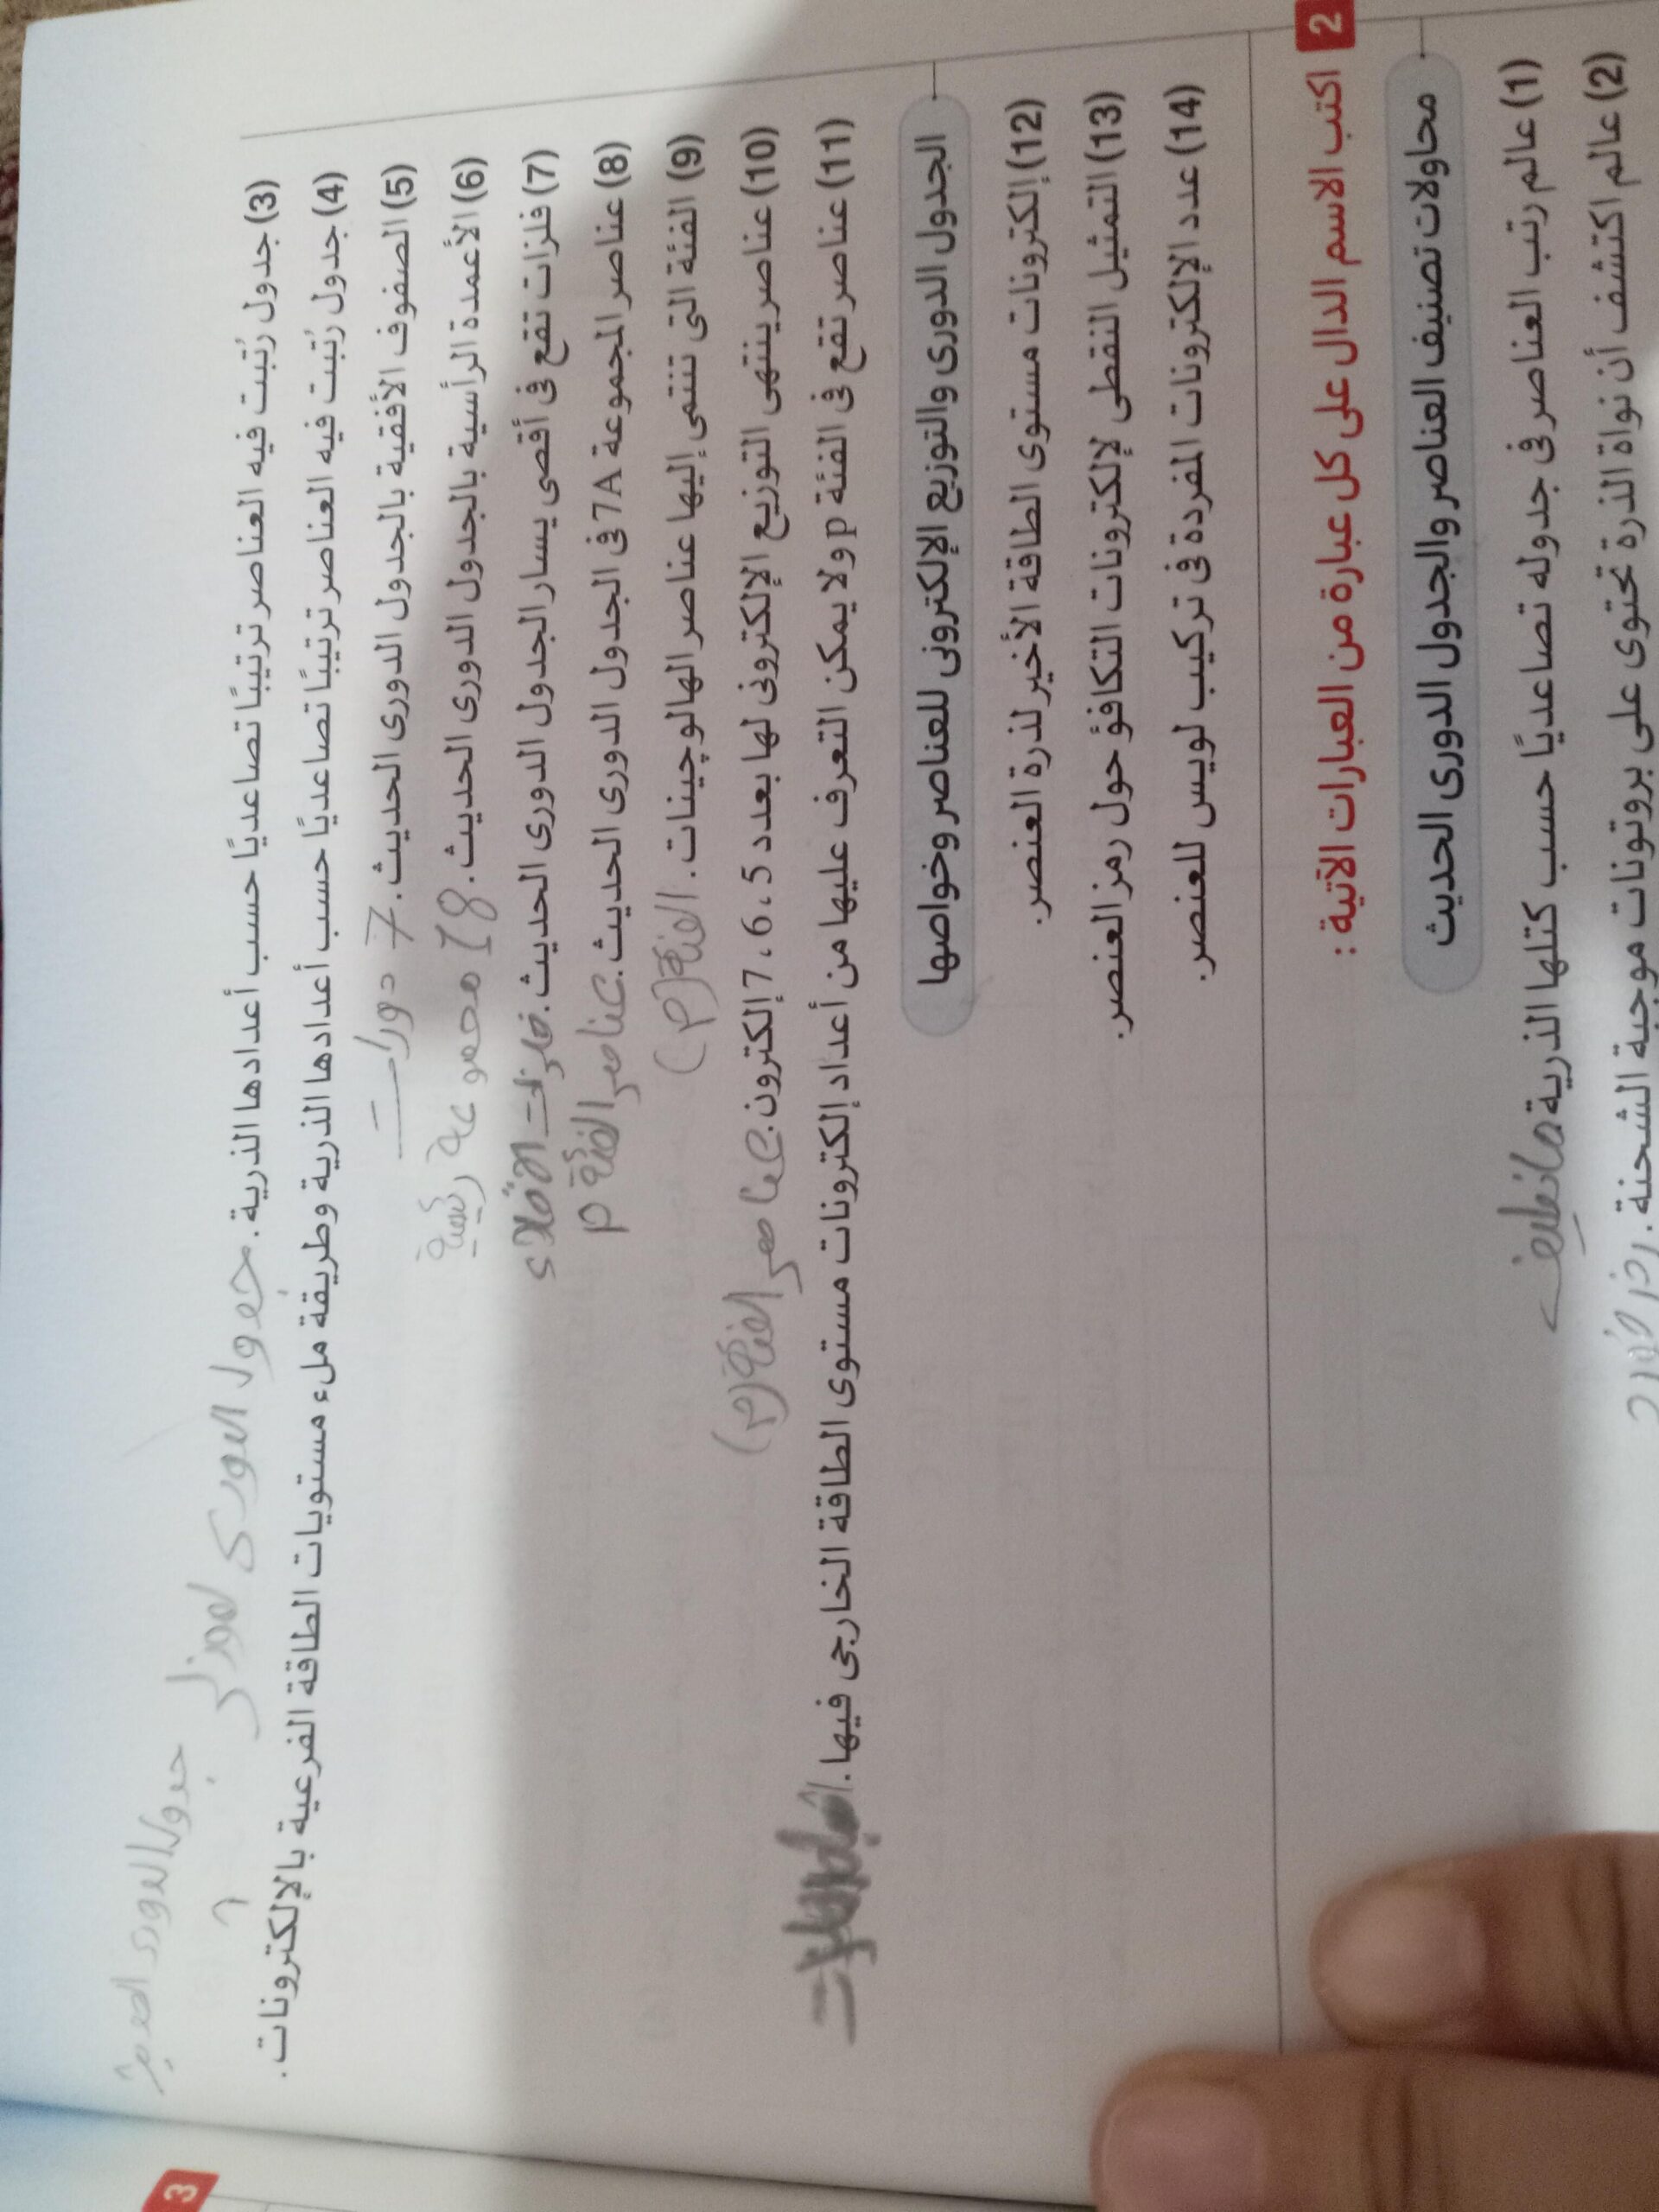 2 اكتب الاسم الدال على كل عبارة من العبارات الآتية :
محاولات تصنيف العناصر والجدول الدورى الحديث
(1) عالم رتب العناصر فى جدوله تصاعديًا حسب كتلها الذرية
(2) عالم اكتشف أن نواة الذرة تحتوى على بروتونات موجبة الشحنة. رذرفورد
(3) جدول رُتبت فيه العناصر ترتيبًا تصاعديًا حسب أعدادها الذرية. جدول الدورى لموزلى
(4) جدول رُتبت فيه العناصر ترتيبًا تصاعديًا حسب أعدادها الذرية وطريقة ملء مستويات الطاقة الفرعية بالإلكترونات.
جدول الدورى الحديث
(5) الصفوف الأفقية بالجدول الدورى الحديث. 7 دورات
(6) الأعمدة الرأسية بالجدول الدورى الحديث. 18 مجموعة
(7) فلزات تقع فى أقصى يسار الجدول الدورى الحديث. فلزات الأقلاء
(8) عناصر المجموعة 7A فى الجدول الدورى الحديث. عناصر الفئة p
(9) الفئة التى تنتمى إليها عناصر الهالوچينات. الفئة (p)
(10) عناصر ينتهى التوزيع الإلكترونى لها بعدد 5 ، 6 ، 7 إلكترون. عناصر الفئة (p)
(11) عناصر تقع فى الفئة p ولا يمكن التعرف عليها من أعداد إلكترونات مستوى الطاقة الخارجى فيها.
الجدول الدورى والتوزيع الإلكترونى للعناصر وخواصها
(12) إلكترونات مستوى الطاقة الأخير لذرة العنصر.
(13) التمثيل النقطى لإلكترونات التكافؤ حول رمز العنصر.
(14) عدد الإلكترونات المفردة فى تركيب لويس للعنصر.
3